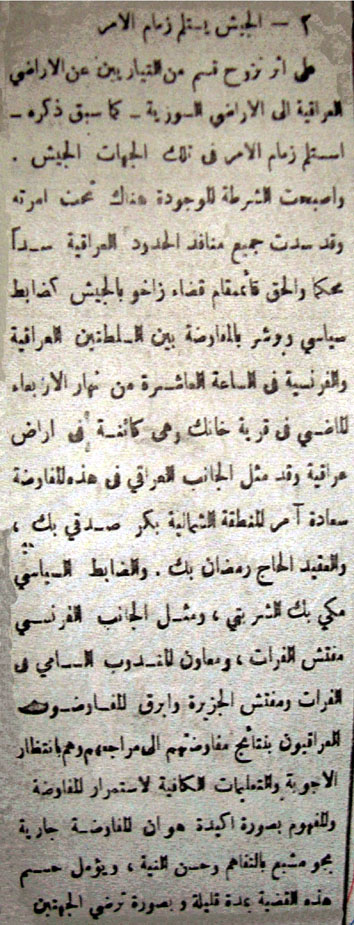 ٢ — الجيش يستلم زمام الامر
على اثر نزوح قسم من التياريين عن الاراضي
العراقية الى الاراضي السورية ـ كما سبق ذكره ـ
استلم زمام الامر فى تلك الجهات الجيش .
واصبحت الشرطة الموجودة هناك تحت امرته
وقد سدت جميع منافذ الحدود العراقية سداً
محكما والحق قائممقام قضاء زاخو بالجيش كضابط
سياسي وبوشر بالمفاوضة بين السلطتين العراقية
والفرنسية فى الساعة العاشرة من نهار الاربعاء
الماضي فى قرية خانك وهى كائنة فى اراض
عراقية وقد مثل الجانب العراقي فى هذه المفاوضة
سعادة آمر المنطقة الشمالية بكر صدقي بك ،
والعقيد الحاج رمضان بك . والضابط السياسي
مكي بك الشربتي ، ومثل الجانب الفرنسي
مفتش الفرات ، ومعاون المندوب السامى فى
الفرات ومفتش الجزيرة وابرق المفاوضون
العراقيون بنتائج مفاوضتهم الى مراجعهم وهم بانتظار
الاجوبة والتعليمات الكافية لاستمرار المفاوضة
والمفهوم بصورة اكيدة هو ان المفاوضة جارية
بجو مشبع بالتفاهم وحسن النية ، ويؤمل حسم
هذه القضية بمدة قليلة و بصورة ترضي الجهتين